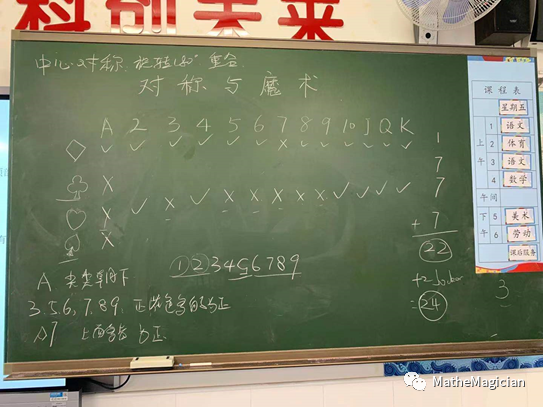 科创未来
中心对称:旋转180°重合
对称与魔术
A 2 3 4 5 6 7 8 9 10 J Q K
◇ ✓ ✓ ✓ ✓ ✓ ✓ × ✓ ✓ ✓ ✓ ✓ ✓ 1
♣ × 7
♡ × ✓ × ✓ × × × × × ✓ ✓ ✓ ✓ 7
♠ × + 7
22
①②3456789
A 尖尖朝下
+2 Joker
=24
3
3.5.6.7.8.9.
♤7
课程表
星期五
上午
1 语文
2 体育
3 语文
4 数学
午间
下午
5 美术
6 劳动
课后服务
MatheMagician